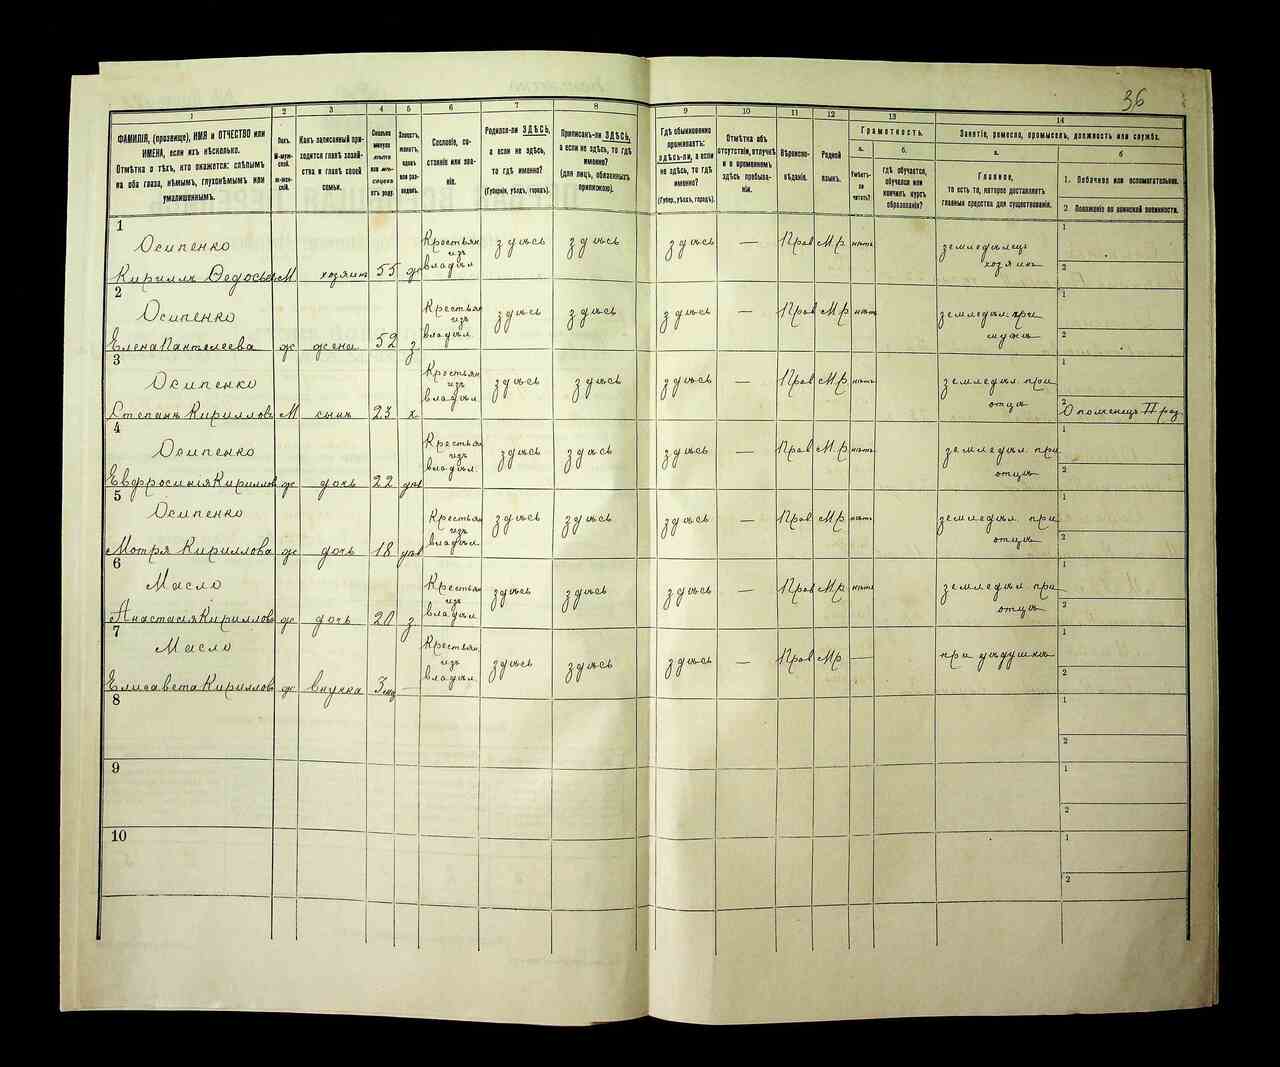 36
1
2
3
4
5
6
7
8
9
10
11
12
13
14
ФАМИЛІЯ, (прозвище), ИМЯ и ОТЧЕСТВО или
ИМЕНА, если ихъ нѣсколько.
Отмѣтка о тѣхъ, кто окажется: слѣпымъ
на оба глаза, нѣмымъ, глухонѣмымъ или
умалишеннымъ.
Полъ.
М-муж-
ской.
ж-жен-
скій.
Какъ записанный при-
ходится главѣ хозяй-
ства и главѣ своей
семьи.
Сколько
минуло
лѣтъ
или мѣ-
сяцевъ
отъ роду.
Холостъ,
женатъ,
вдовъ
или раз-
веденъ.
Сословіе, со-
стояніе или зва-
ніе.
Родился-ли ЗДѢСЬ,
а если не здѣсь,
то гдѣ именно?
(Губернія, уѣздъ, городъ).
Приписанъ-ли ЗДѢСЬ,
а если не здѣсь, то гдѣ
именно?
(для лицъ, обязанныхъ
припискою).
Гдѣ обыкновенно
проживаетъ:
здѣсь-ли, а если
не здѣсь, то гдѣ
именно?
(Губер., уѣздъ, городъ).
Отмѣтка объ
отсутствіи, отлучкѣ
и о временномъ
здѣсь пребыва-
ніи.
Вѣроиспо-
вѣданіе.
Родной
языкъ.
Грамотность.
а.
б.
Умѣетъ-
ли
читать?
гдѣ обучается,
обучался или
кончилъ курсъ
образованія?
Занятіе, ремесло, промыселъ, должность или служба.
а.
б
Главное,
то есть то, которое доставляетъ
главныя средства для существованія.
1. Побочное или вспомогательное.
2 Положеніе по воинской повинности.
1
Осипенко
Кириллъ Ѳедосьев М хозяинъ 55 ж Крестьян изъ владѣл. здѣсь здѣсь здѣсь — Прав М.р нѣтъ земледѣлецъ хозяинъ
1
2
2
Осипенко
Елена Пантелеева ж жена 52 з Крестьян изъ владѣл. здѣсь здѣсь здѣсь — Прав М.р нѣтъ земледѣл. при мужѣ
1
2
3
Осипенко
Степанъ Кириллов М сынъ 23 х Крестьян изъ владѣл. здѣсь здѣсь здѣсь — Прав М.р нѣтъ земледѣл. при отцѣ
1
2
Ополченецъ II раз
4
Осипенко
Евфросинія Кириллов ж дочь 22 дѣв Крестьян изъ владѣл. здѣсь здѣсь здѣсь — Прав М.р нѣтъ земледѣл. при отцѣ
1
2
5
Осипенко
Мотря Кириллова ж дочь 18 дѣв Крестьян изъ владѣл. здѣсь здѣсь здѣсь — Прав М.р нѣтъ земледѣл. при отцѣ
1
2
6
Масло
Анастасія Кириллов ж дочь 20 з Крестьян изъ владѣл. здѣсь здѣсь здѣсь — Прав М.р. нѣтъ земледѣл при отцѣ
1
2
7
Масло
Елисавета Кириллов ж внучка 3 мѣс — Крестьян. изъ владѣл здѣсь здѣсь здѣсь — Прав М.р — при дѣдушкѣ
1
2
8
1
2
9
1
2
10
1
2